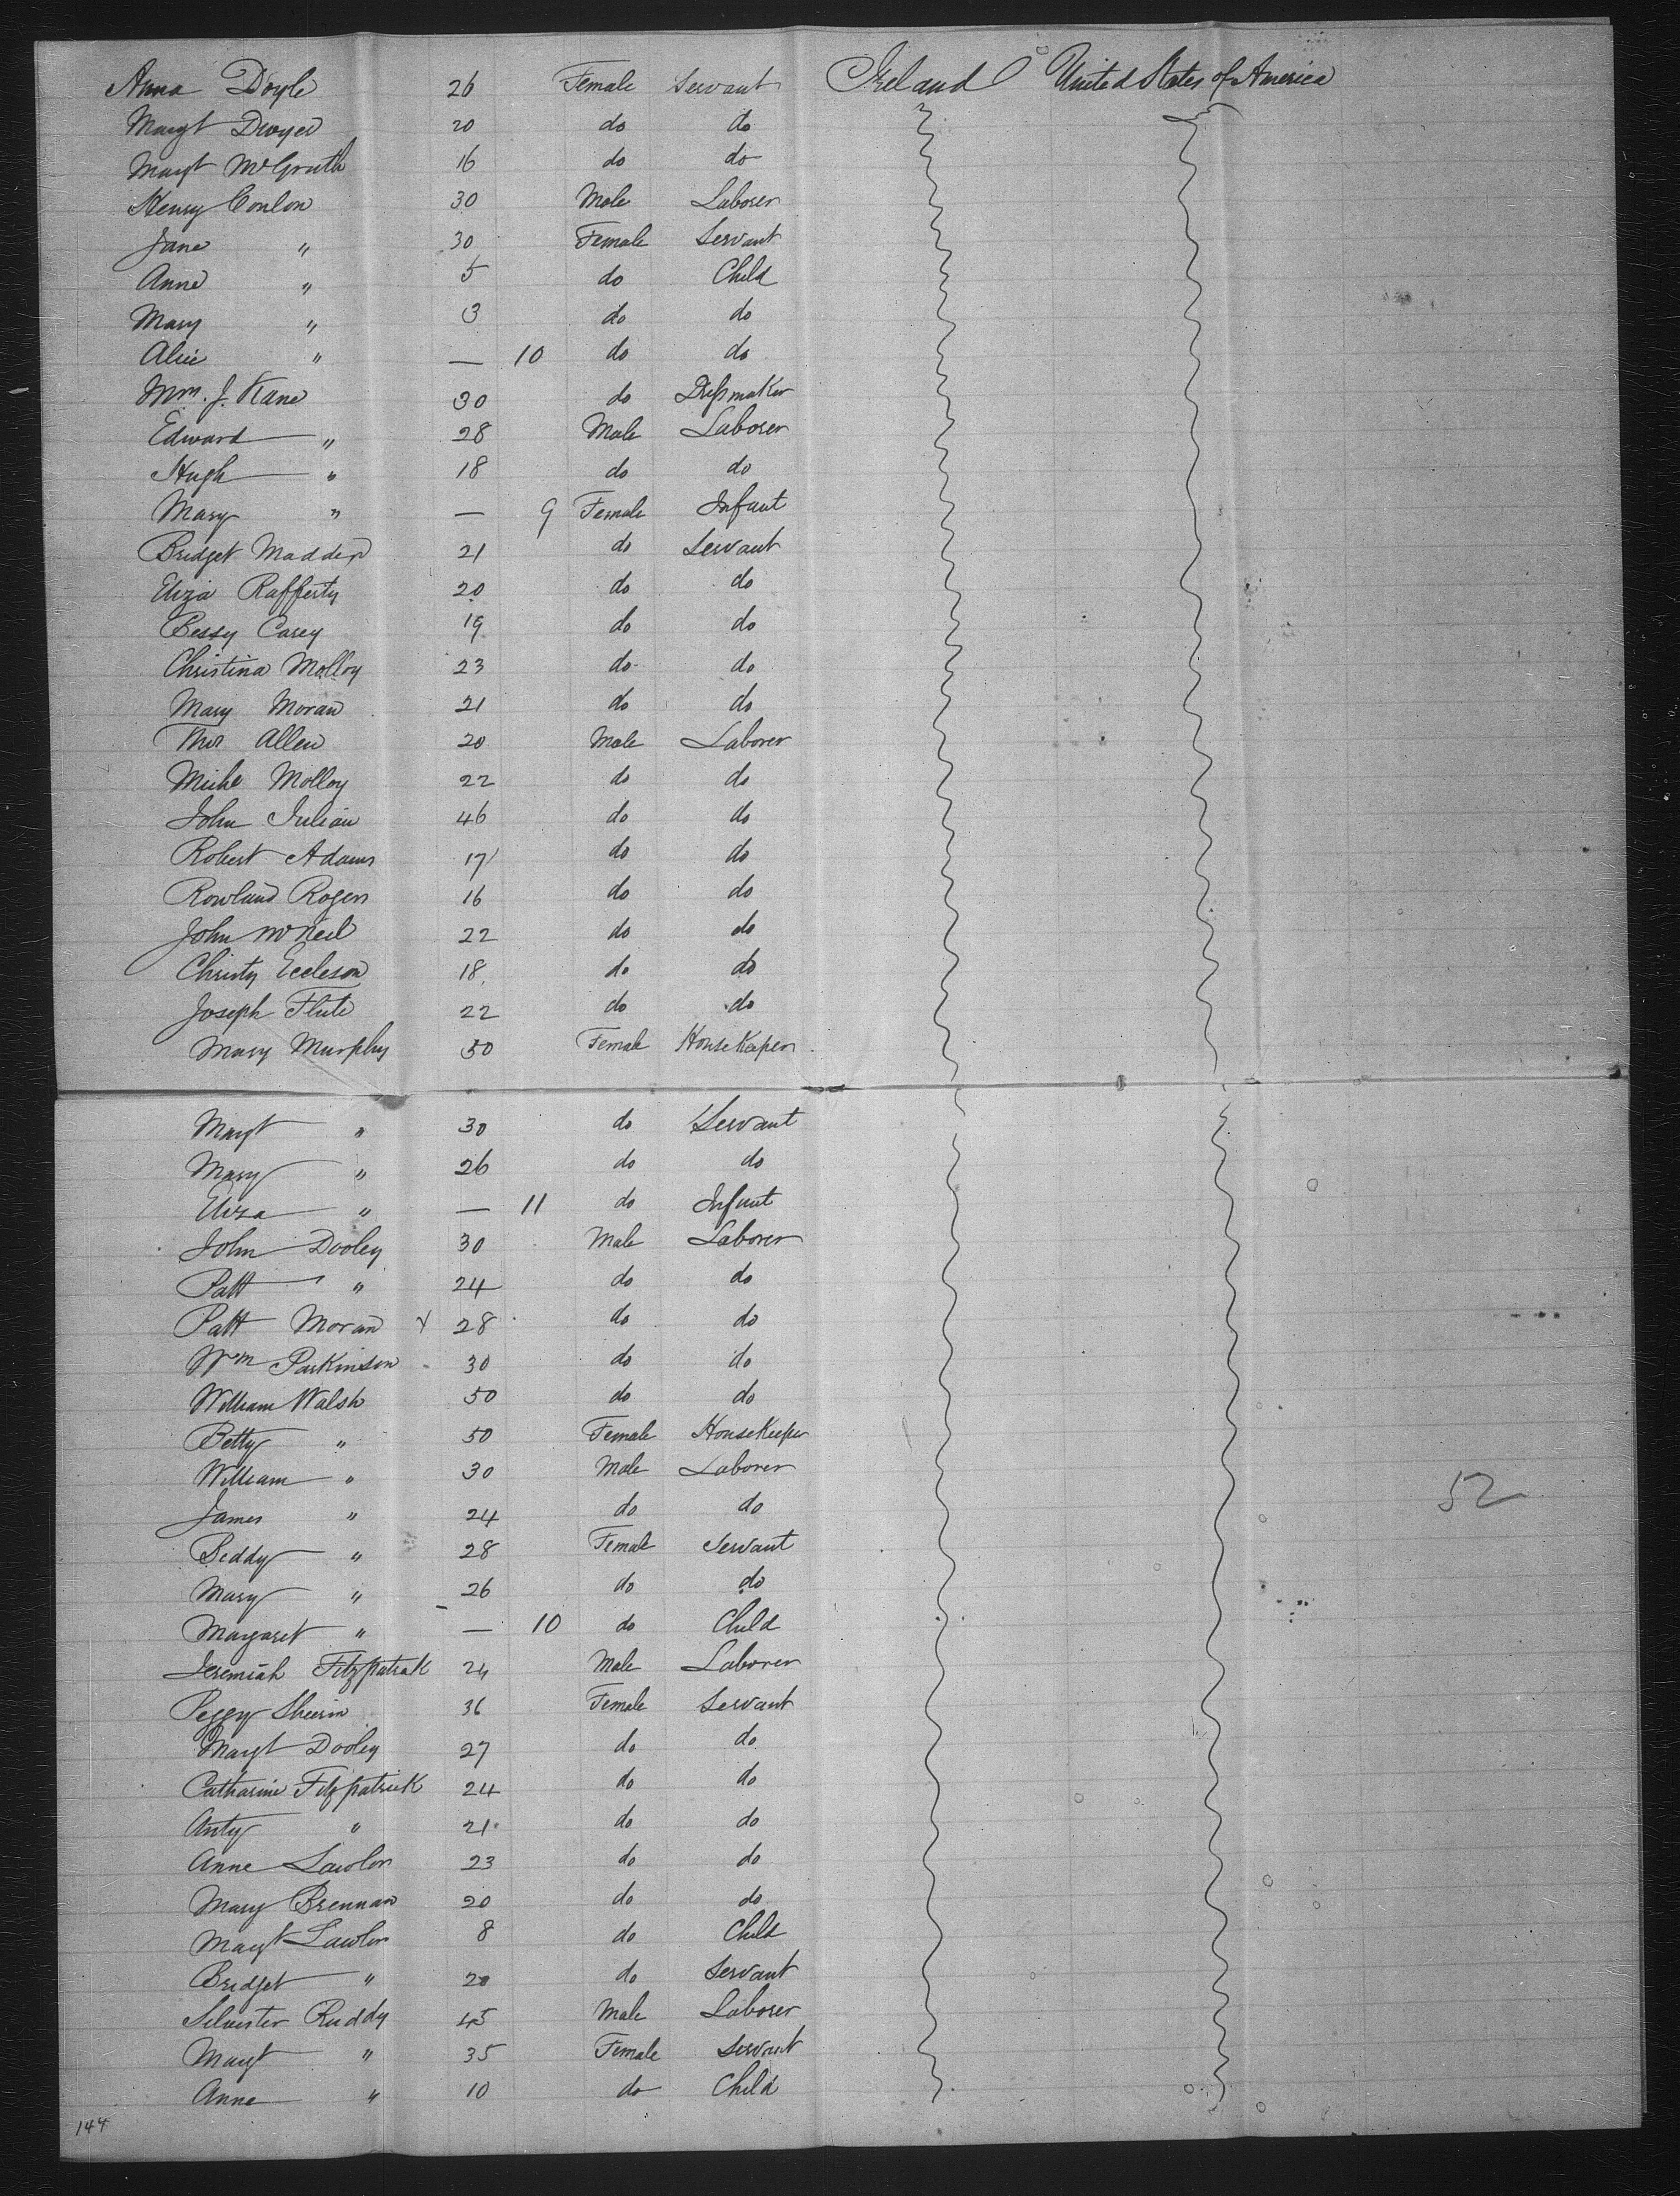 Anna Doyle 26 Female Servant Ireland United States of America
Margt Dwyer 20 do do
Margt McGrath 16 do do
Henry Conlon 30 Male Laborer
Jane " 30 Female Servant
Anne " 5 do Child
Mary " 3 do do
Alice " — 10 do do
J. Kane 30 do Dressmaker
Edward " 28 Male Laborer
Hugh " 18 do do
Mary " — 9 Female Infant
Bridget Madden 21 do Servant
Eliza Rafferty 20 do do
Bessy Carey 19 do do
Christina Molloy 23 do do
Mary Moran 21 do do
Thos Allen 20 Male Laborer
Michl Molloy 22 do do
John Julian 46 do do
Robert Adams 17 do do
Rowland Rogers 16 do do
John McNeil 22 do do
Christy Eccleson 18 do do
Joseph Flute 22 do do
Mary Murphy 50 Female HouseKeeper
Margt " 30 do Servant
Mary " 26 do do
Eliza " — 11 do Infant
John Dooley 30 Male Laborer
Patt " 24 do do
Patt Moran 28 do do
Wm Parkinson 30 do do
William Walsh 50 do do
Betty " 50 Female HouseKeeper
William " 30 Male Laborer
James " 24 do do
52
Biddy " 28 Female Servant
Mary " 26 do do
Margaret " — 10 do Child
Jeremiah Fitzpatrick 24 Male Laborer
Peggy 36 Female Servant
Margt Dooley 27 do do
Catharine Fitzpatrick 24 do do
Anty " 21 do do
Anne Lawlor 23 do do
Mary Brennan 20 do do
Margt Lawlor 8 do Child
Bridget " 20 do Servant
Silvester Ruddy 45 Male Laborer
Margt " 35 Female Servant
Anne " 10 do Child
144